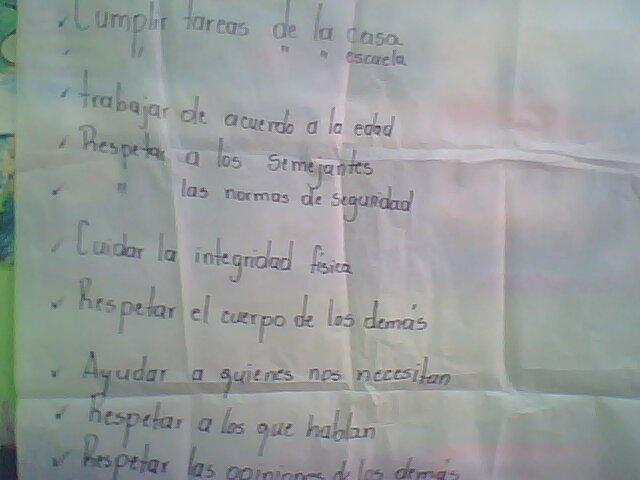 ✓ Cumplir tareas de la casa
✓ " " " escuela
✓ trabajar de acuerdo a la edad
✓ Respetar a los semejantes
✓ " las normas de seguridad
✓ Cuidar la integridad física
✓ Respetar el cuerpo de los demás
✓ Ayudar a quienes nos necesitan
✓ Respetar a los que hablan
✓ Respetar las opiniones de los demás